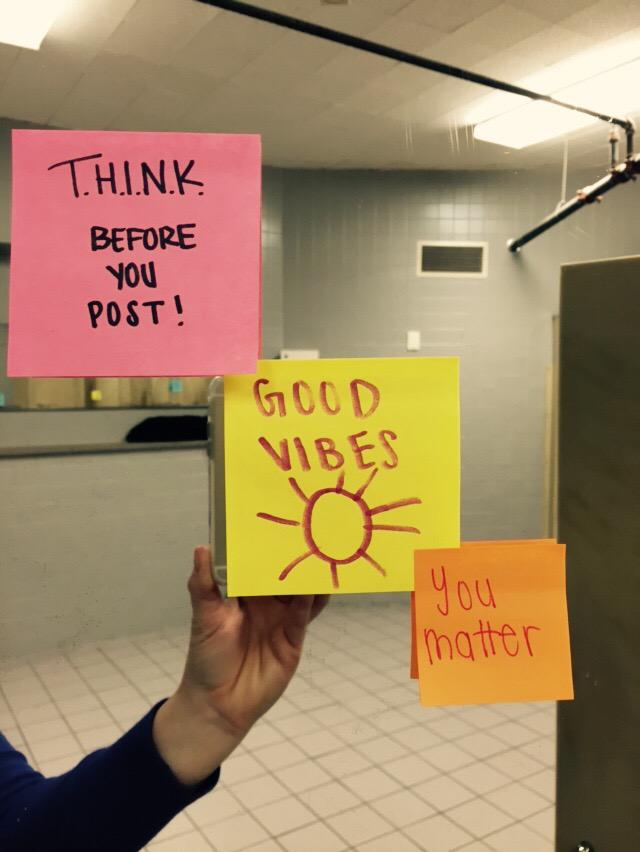 T.H.I.N.K.
BEFORE
YOU
POST!
GOOD
VIBES
you
matter